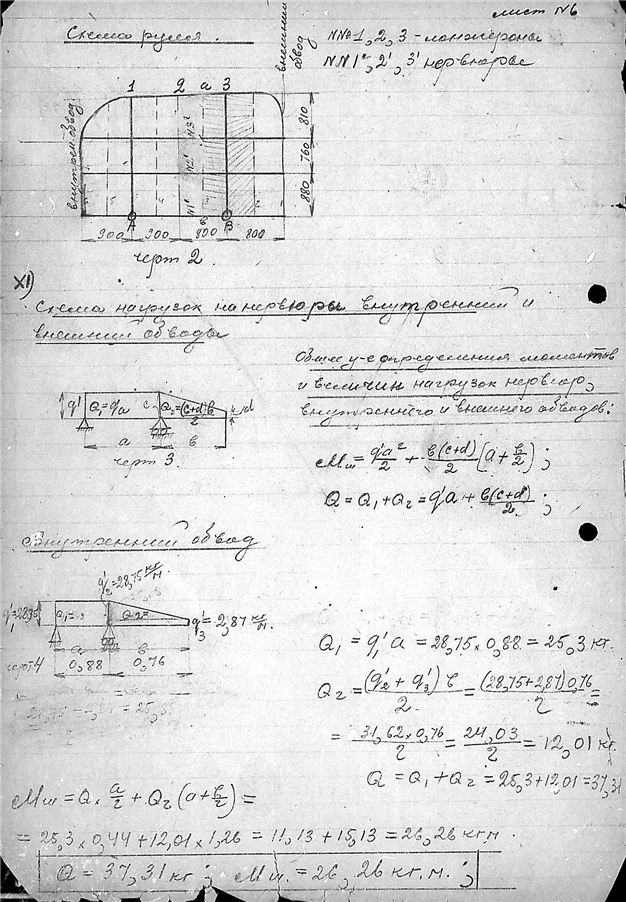 лист N6
Схема руля.
внешний обвод
NN 1, 2, 3 - лонжероны
NN 1', 2', 3' нервюры
1 2 а 3
внутрен. обвод.
N3' N2' N1'
810
760
880
А В
900 900 800 800
черт 2.
XI)
Схема нагрузок на нервюры внутренний и
внешний обводы
Общие у-е определения моментов
и величин нагрузок нервюр,
внутреннего и внешнего обводов:
q' Q₁=q'a c Q₂=(c+d)в/2 d
а в
черт 3.
Mш = q'a²/2 + в(c+d)/2 (a+в/2);
Q = Q₁+Q₂ = q'a + в(c+d)/2;
Внутренний обвод
q'₂=28,75 кг/м.
q'₁=28,75 Q₁= Q₂= q'₃=2,87 кг/м.
а в
черт. 4 0,88 0,76
Q₁ = q'₁ a = 28,75 × 0,88 = 25,3 кг.
Q₂ = (q'₂ + q'₃) в/2 = (28,75+2,87) 0,76/2 =
= 31,62×0,76/2 = 24,03/2 = 12,01 кг.
Q = Q₁ + Q₂ = 25,3+12,01=37,31
Mш = Q × a/2 + Q₂ (a+в/2) =
= 25,3 × 0,44 + 12,01 × 1,26 = 11,13 + 15,13 = 26,26 кг м.
Q = 37,31 кг; Mш. = 26,26 кг. м.;